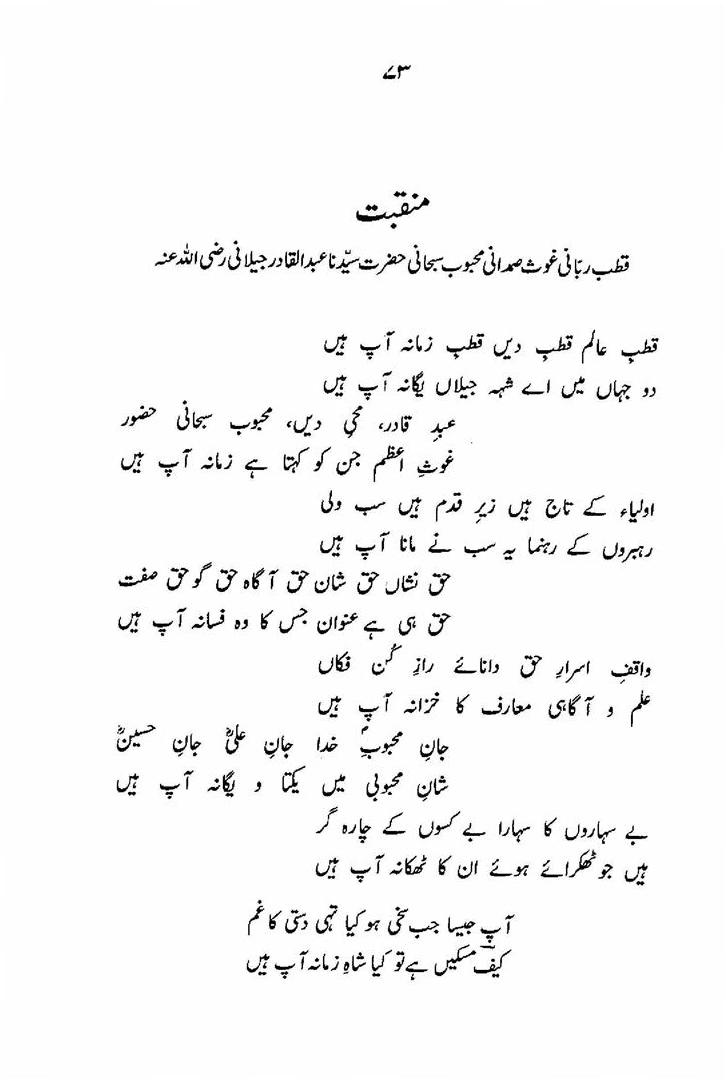 ۷۳
منقبت
قطب ربّانی غوث صمدانی محبوب سبحانی حضرت سیّدنا عبدالقادر جیلانی رضی اللہ عنہ
قطبِ عالم قطبِ دیں قطبِ زمانہ آپ ہیں
دو جہاں میں اے شہہ جیلاں یگانہ آپ ہیں
عبدِ قادر، محیِ دیں، محبوب سبحانی حضور
غوثِ اعظم جن کو کہتا ہے زمانہ آپ ہیں
اولیاء کے تاج ہیں زیرِ قدم ہیں سب ولی
رہبروں کے رہنما یہ سب نے مانا آپ ہیں
حق نشاں حق شان حق آگاہ حق گو حق صفت
حق ہی ہے عنوان جس کا وہ فسانہ آپ ہیں
واقفِ اسرارِ حق دانائے رازِ کُن فکاں
علم و آگاہی معارف کا خزانہ آپ ہیں
جانِ محبوبِؐ خدا جانِ علیؓ جانِ حسینؓ
شانِ محبوبی میں یکتا و یگانہ آپ ہیں
بے سہاروں کا سہارا بے کسوں کے چارہ گر
ہیں جو ٹھکرائے ہوئے ان کا ٹھکانہ آپ ہیں
آپ جیسا جب سخی ہو کیا تہی دستی کا غم
کیفؔ مسکیں ہے تو کیا شاہِ زمانہ آپ ہیں